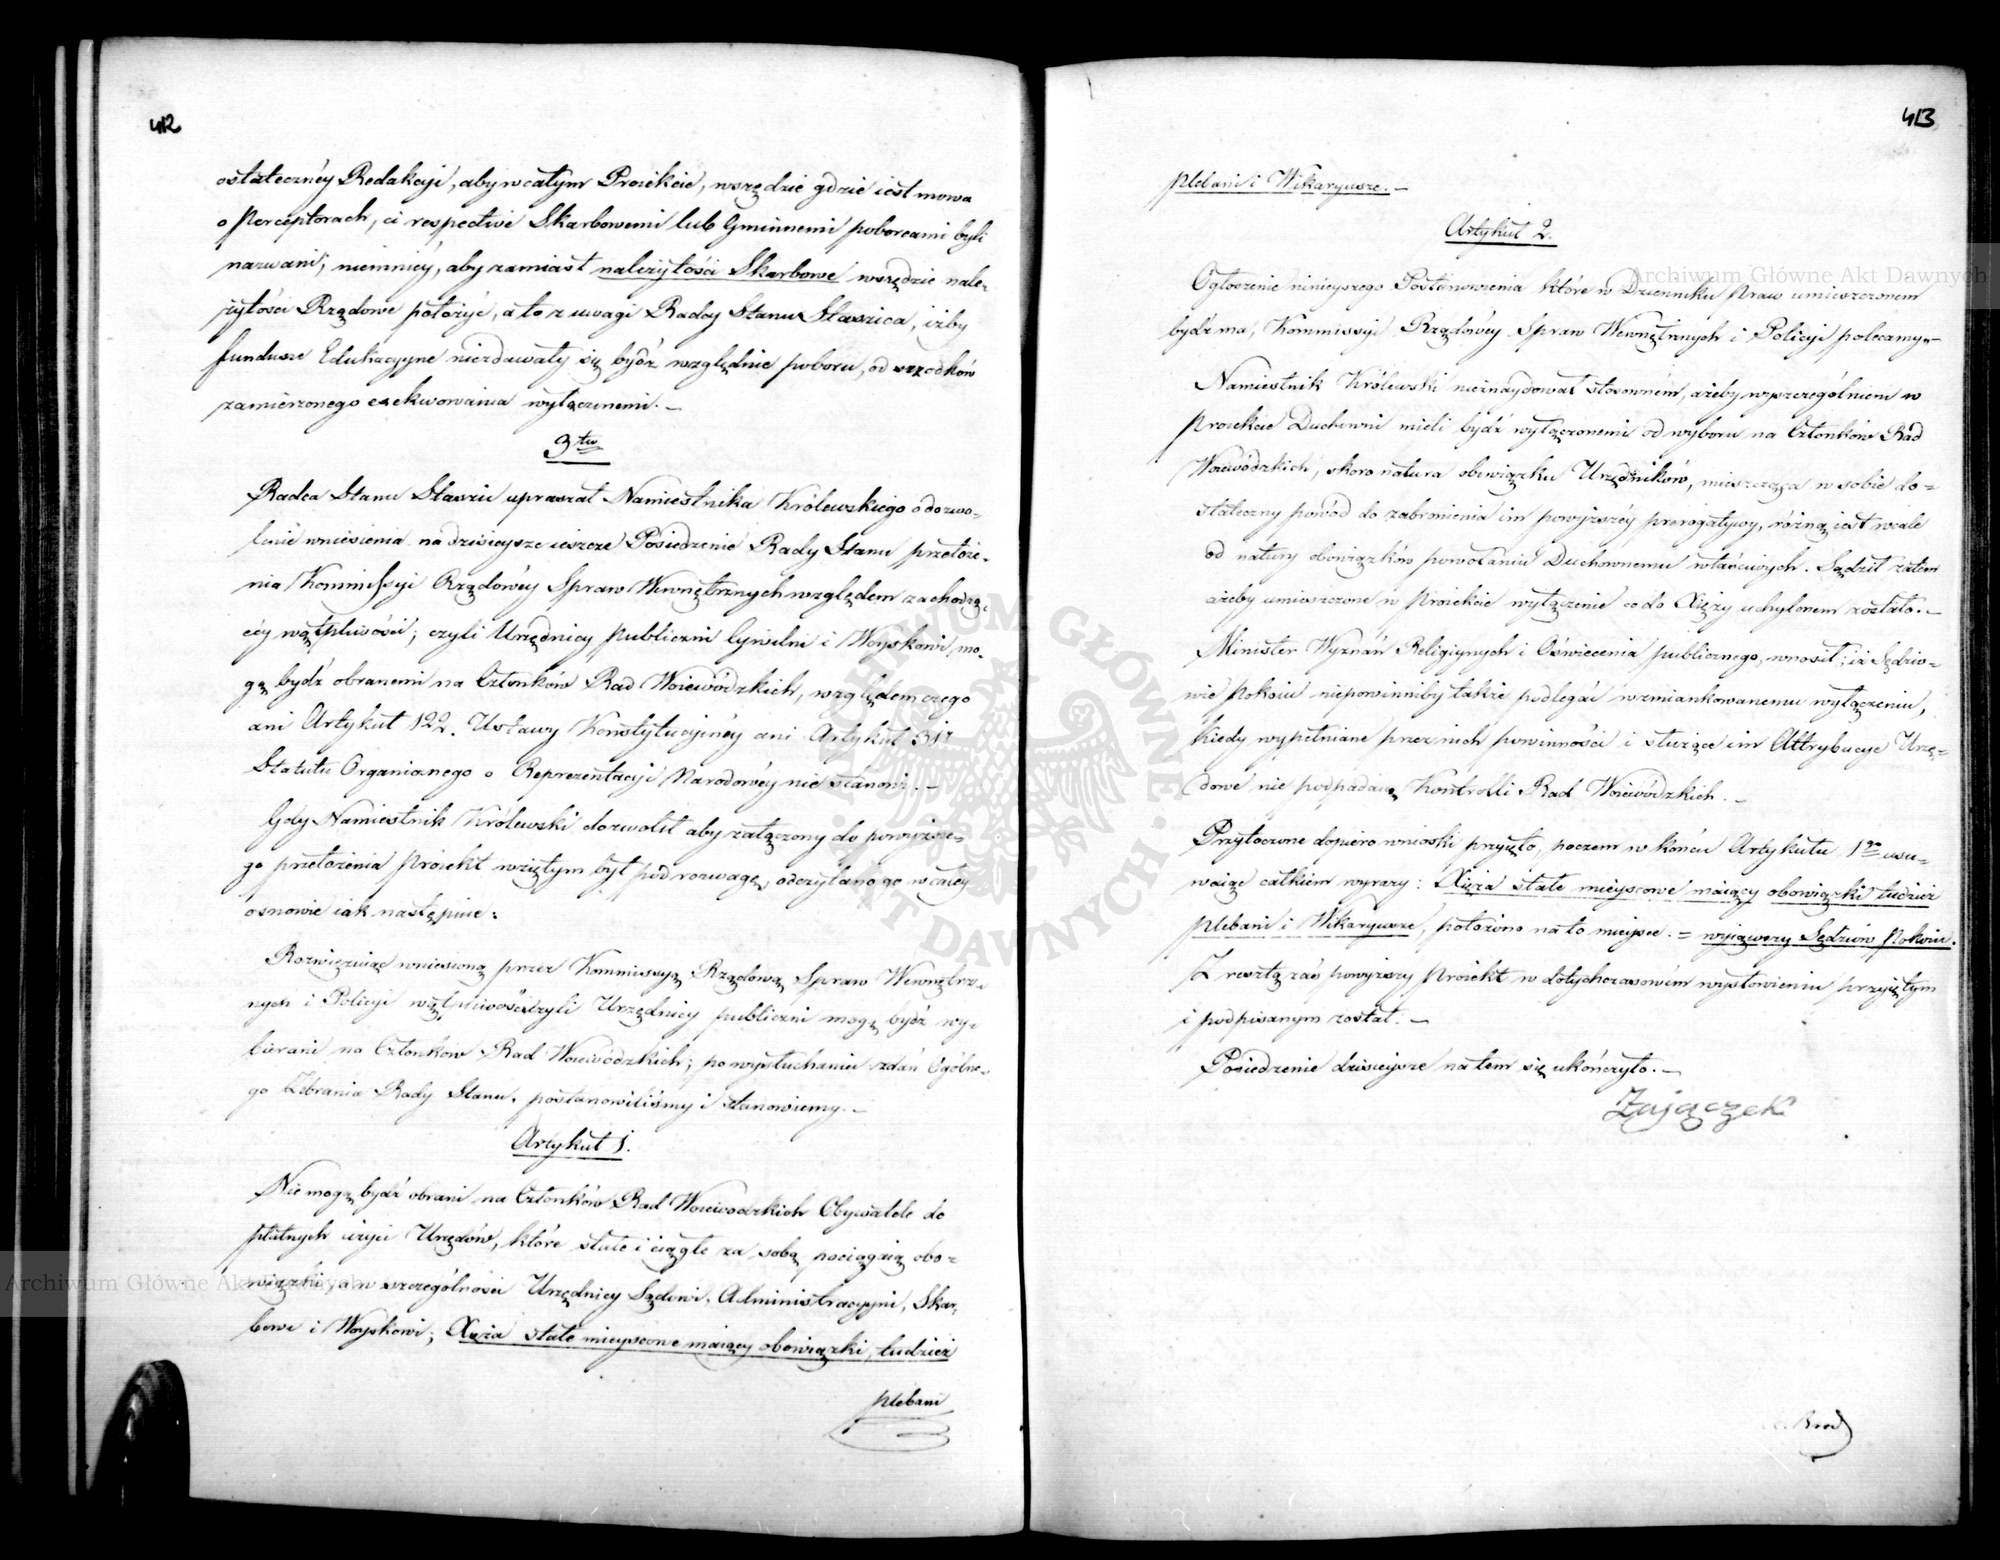 412
ostateczney Redakcyi, aby w całym Proiekcie, wszędzie gdzie iest mowa
o Perceptorach, ci respective Skarbowemi lub Gminnemi poborcami byli
nazwani; niemniéy, aby zamiast należytości Skarbowe wszędzie nale-
żytości Rządowe położyć, a to z uwagi Radcy Stanu Staszica, iżby
fundusze Edukacyyne niezdawały się bydź względnie poboru, od srzodków
zamierzonego exekwowania wyłączonemi. —
3tio
Radca Stanu Staszic upraszał Namiestnika Królewskiego o dozwo-
lenie wniesienia na dzisieysze ieszcze Posiedzenie Rady Stanu przełoże-
nia Kommissyi Rządowéy Spraw Wewnętrznych względem zachodzą-
céy wątpliwości; czyli Urzędnicy Publiczni Cywilni i Woyskowi, mo-
gą bydź obranemi na Członków Rad Woiewódzkich, względem czego
ani Artykuł 122. Ustawy Konstytucyinéy ani Artykuł 31
Statutu Organicznego o Reprezentacyi Narodowéy nie stanowi. —
Gdy Namiestnik Królewski dozwolił aby załączony do powyższe-
go przełożenia Proiekt wziętym był pod rozwagę, odczytano go w całéy
osnowie iak następuie:
Rozwięzuiąc wniesioną przez Kommissyą Rządową Spraw Wewnętrz-
nych i Policyi wątpliwość czyli Urzędnicy publiczni mogą bydź wy-
bierani na Członków Rad Woiewódzkich; po wysłuchaniu zdań Ogólne-
go Zebrania Rady Stanu, postanowiliśmy i stanowiemy. —
Artykuł 1.
Nie mogą bydź obrani na Członków Rad Woiewodzkich Obywatele do
płatnych użyci Urzędów, które stałe i ciągłe za sobą pociągaią obo-
wiązki, a w szczególności Urzędnicy Sądowi, Administracyyni, Skar-
bowi i Woyskowi; Xięża stałe mieyscowe maiący obowiązki, tudzież
Plebani
413
Plebani i Wikaryusze. —
Artykuł 2.
Ogłoszenie ninieyszego Postanowienia które w Dzienniku Praw umieszczonem
bydź ma, Kommissyi Rządowéy Spraw Wewnętrznych i Policyi polecamy. —
Namiestnik Królewski nieznaydował stosowném, ażeby wyszczególnieni w
Proiekcie Duchowni mieli bydź wyłączonemi od wyboru na Członków Rad
Woiewódzkich, skoro natura obowiązku Urzędników, mieszcząca w sobie do-
stateczny powód do zabronienia im powyższéy prerogatywy, różną iest wcale
od natury obowiązków powołaniu Duchownemu właściwych. Sądził zatem
ażeby umieszczone w Proiekcie wyłączenie co do Xięży uchylonem zostało. —
Minister Wyznań Religiynych i Oświecenia publicznego, wnosił; iż Sędzio-
wie Pokoiu niepowinniby także podlegać wzmiankowanemu wyłączeniu,
kiedy wypełniane przez nich powinności i służące im Attrybucye Urzę-
dowe nie podpadaią Kontrolli Rad Woiewódzkich. —
Przytoczone dopiero wnioski przyięto, poczem w końcu Artykułu 1go usu-
waiąc całkiem wyrazy: Xięża stałe mieyscowe maiący obowiązki tudzież
Plebani i Wikaryusze, położono na to mieysce: = wyiąwszy Sędziów Pokoiu.
Z resztą zaś powyższy Proiekt w dotychczasowém wysłowieniu przyiętym
i podpisanym został. —
Posiedzenie dzisieysze na tem się ukończyło. —
Zajączek
Archiwum Główne Akt Dawnych
Archiwum Główne Akt Dawnych
ARCHIWUM GŁÓWNE · AKT DAWNYCH ·